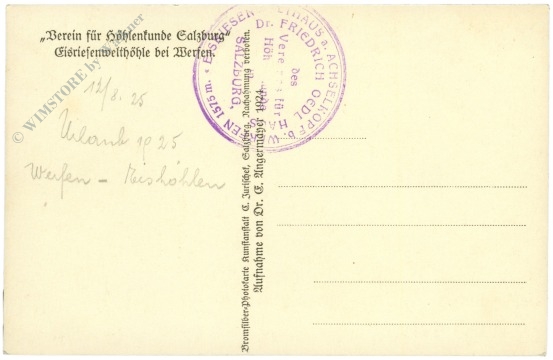 „Verein für Höhlenkunde Salzburg"
Eisriesenwelthöhle bei Werfen.
12/8. 25
Urlaub 1925
Werfen - Eishöhlen
© WIMSTORE by Wimmer
Bromsilber-Photokarte Kunstanstalt C. Jurischek, Salzburg. Nachahmung verboten.
Aufnahme von Dr. E. Angermayer 1924.
a. ACHSELKOPF b. W
FEN 1575 m.
Dr. FRIEDRICH OEDL HA
des
Vere für
Höh
SALZBURG.